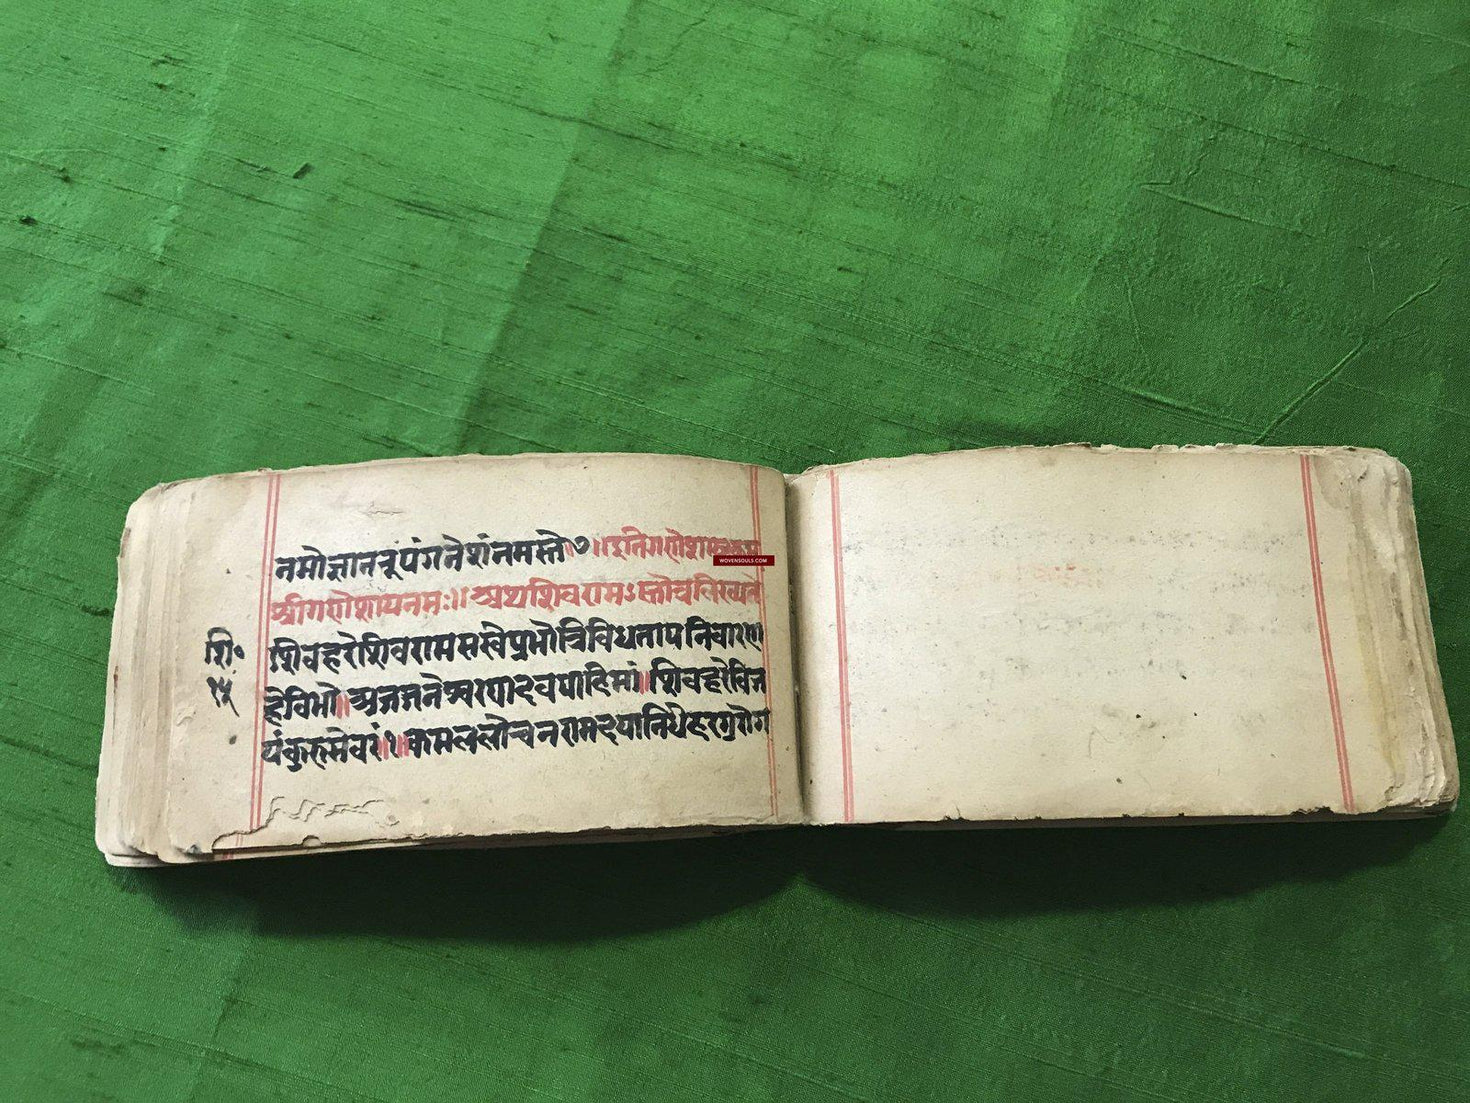 नमोज्ञानरूपंगनेशंनमस्ते॥७॥इतिगणेशाष्टकम्
WOVENSOULS.COM
श्रीगणेशायनमः॥अथशिवरामऽस्तोत्रलिख्यते
शि॰
शिवहरेशिवरामसखेप्रभोत्रिविधतापनिवारण
१५
हेविभो॥अजजनेश्वरयादवपाहिमां॥शिवहरेविज
यंकुरुमेवरं॥१॥कमललोचनरामदयानिधेहरगुरोग